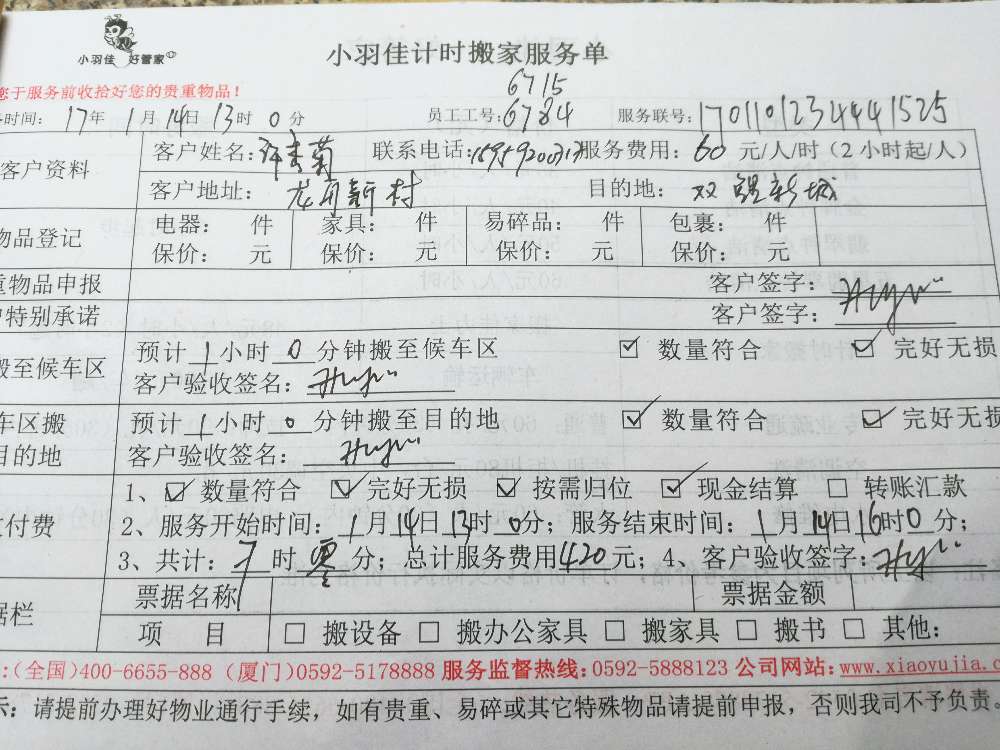 小羽佳 好管家
小羽佳计时搬家服务单
您于服务前收拾好您的贵重物品！
6715
务时间：17年1月14日13时0分 员工工号：6784 服务联号：1701101234441525
客户资料 客户姓名： 联系电话：15959200313 服务费用：60元/人/时（2小时起/人）
客户地址：龙舟新村 目的地：双鲤新城
物品登记 电器： 件 家具： 件 易碎品： 件 包裹： 件
保价： 元 保价： 元 保价： 元 保价： 元
重物品申报 客户签字：
户特别承诺 客户签字：
搬至候车区 预计1小时0分钟搬至候车区 ☑ 数量符合 ☑ 完好无损
客户验收签名：
车区搬 预计1小时0分钟搬至目的地 ☑ 数量符合 ☑ 完好无损
目的地 客户验收签名：
1、☑ 数量符合 ☑ 完好无损 ☑ 按需归位 ☑ 现金结算 □ 转账汇款
付费 2、服务开始时间：1月14日13时0分；服务结束时间：1月14日16时0分；
3、共计：7时零分；总计服务费用420元；4、客户验收签字：
据栏 票据名称 票据金额
项 目 □ 搬设备 □ 搬办公家具 □ 搬家具 □ 搬书 □ 其他：
：(全国)400-6655-888 (厦门)0592-5178888 服务监督热线：0592-5888123 公司网站：www.xiaoyujia.c
示：请提前办理好物业通行手续，如有贵重、易碎或其它特殊物品请提前申报，否则我司不予负责。